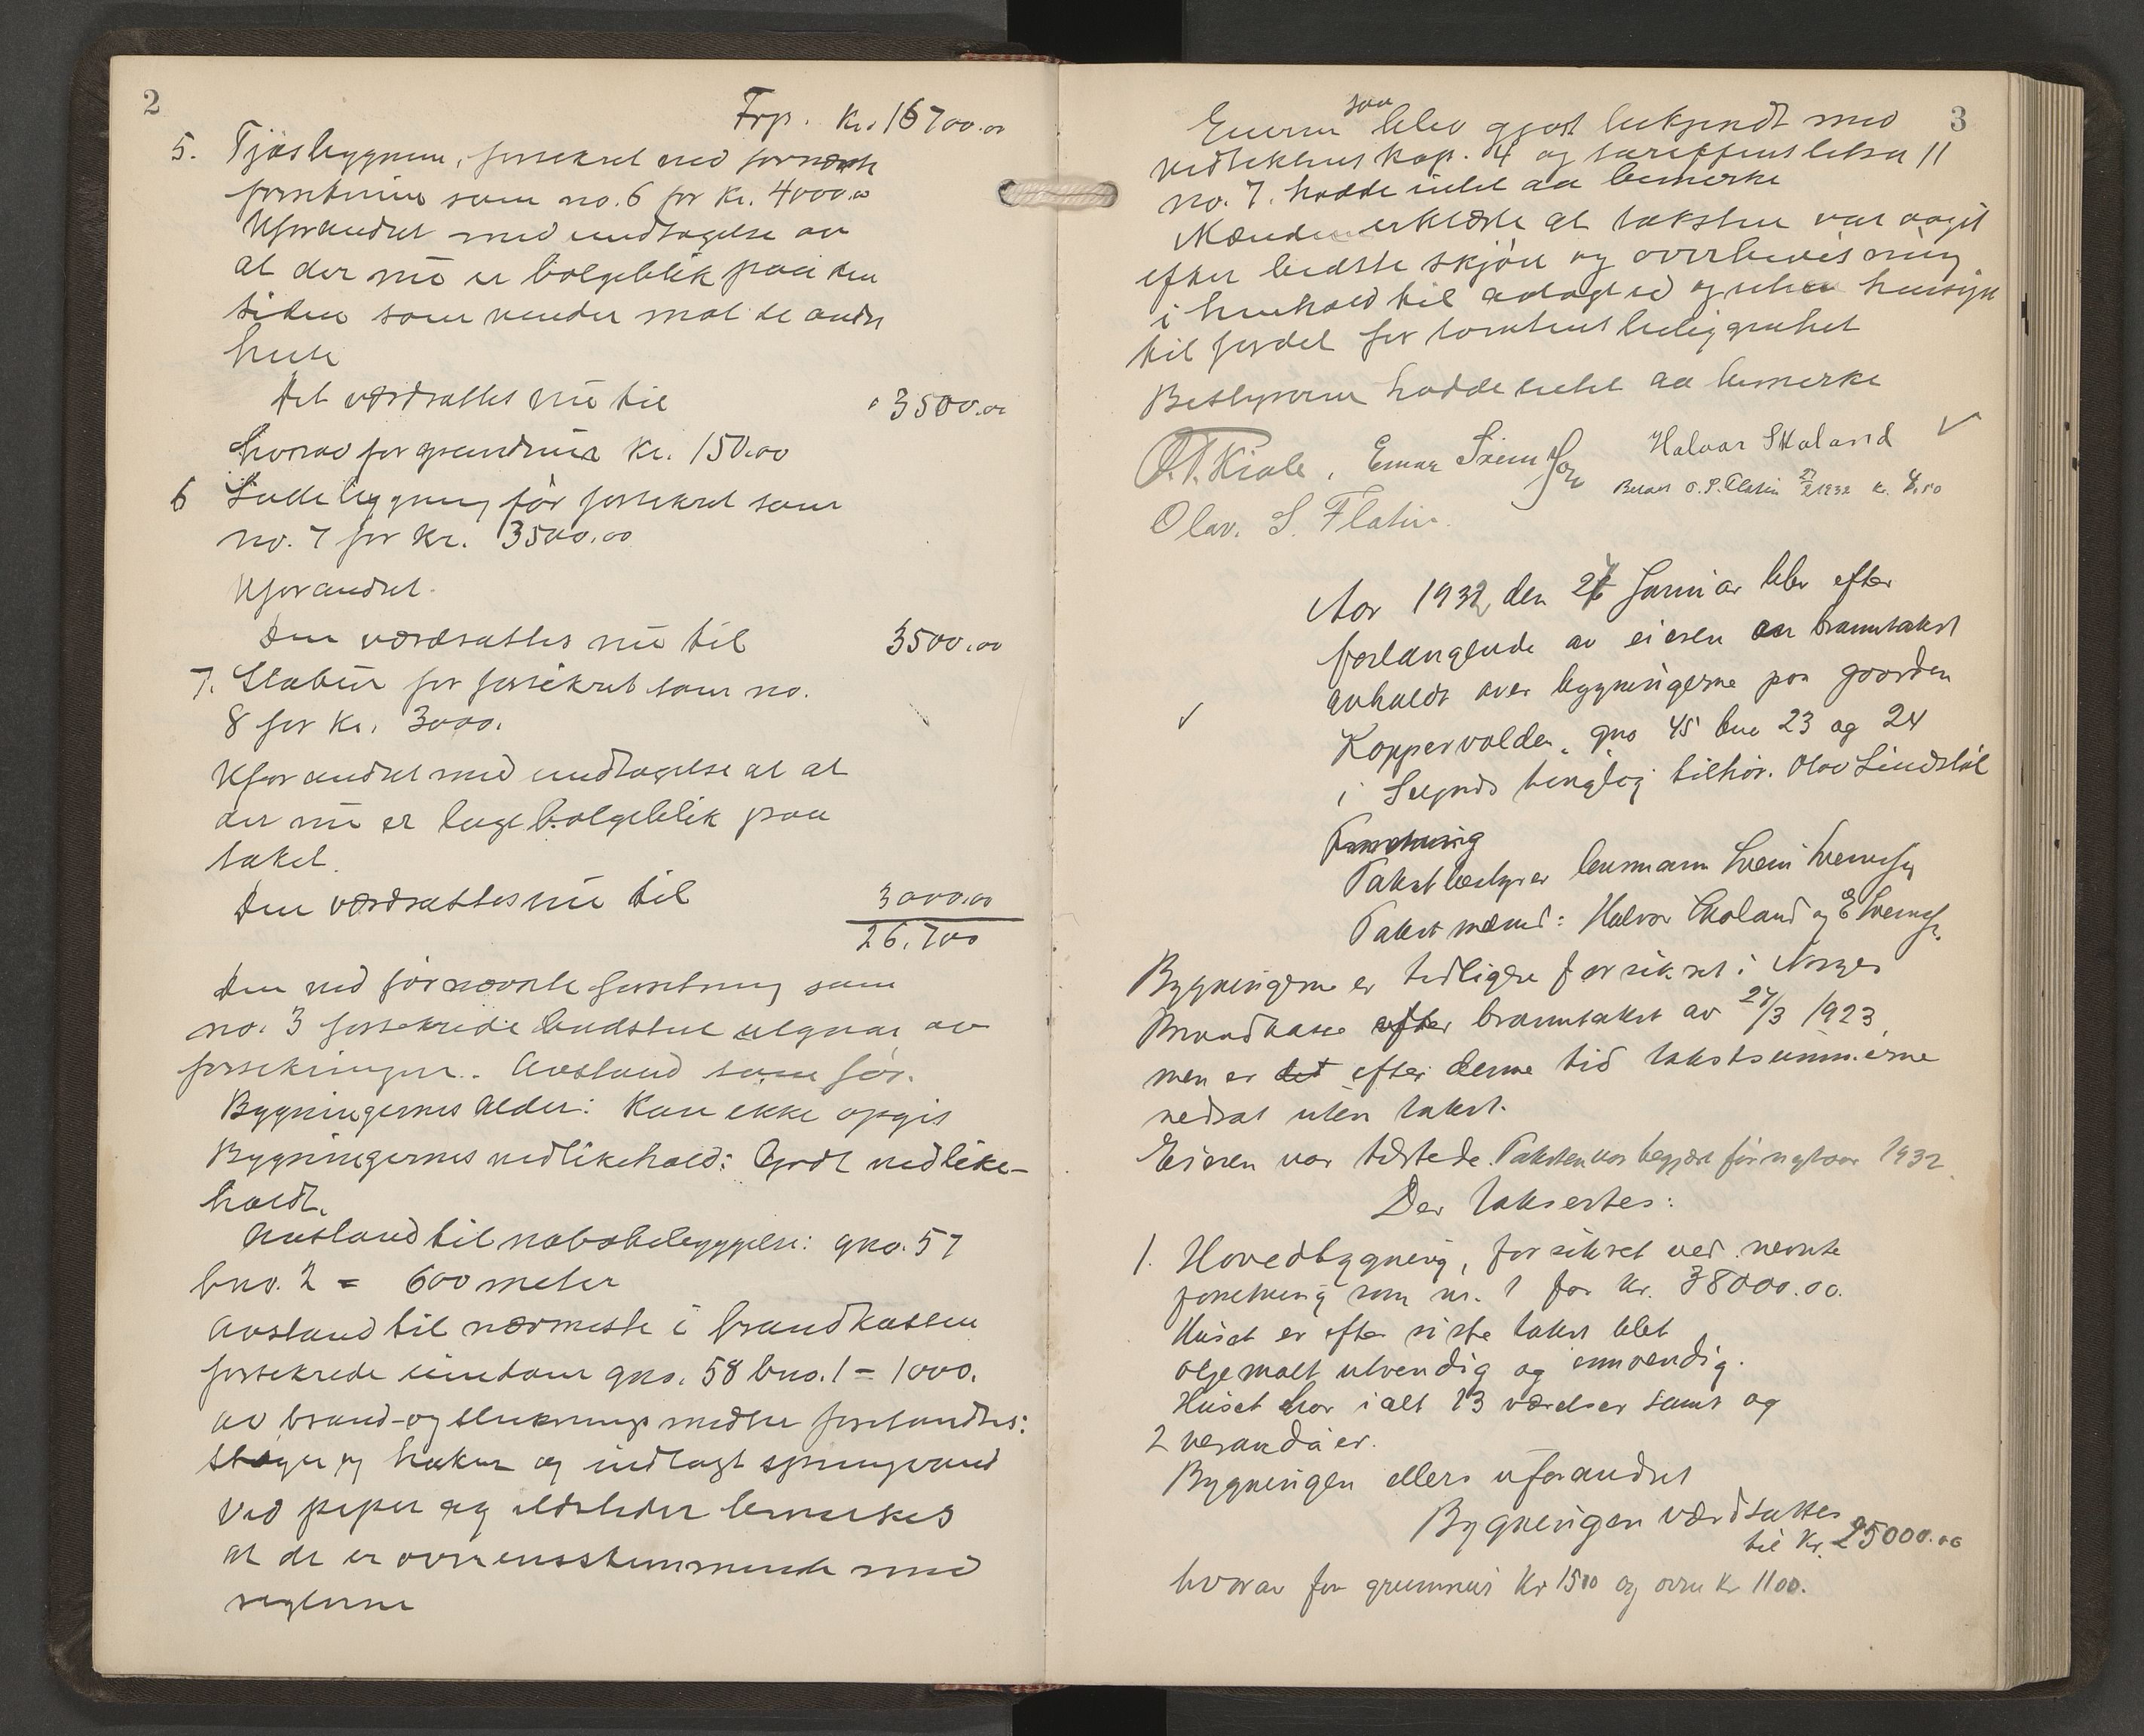 2
Frp. Kr. 16700.00
5. Fjøsbygning, forsekret ved fornævnte
forretning som no. 6 for Kr. 4000.00
Uforandret med undtagelse av
at der nu er bølgeblik paa den
siden som vender mot de andre
huse
Det værdsattes nu til " 3500.00
hvorav for grundmur Kr. 150.00
6 Ladebygning før forsekret som
no. 7 for Kr. 3500.00
Uforandret.
Den værdsattes nu til 3500.00
7. Stabur før forsikret som no.
8 for Kr. 3000.
Uforandret med undtagelse at at
der nu er bølgeblik paa
taket.
Den værdsattes nu til 3000.00
26.700
Den ved førnævnte forretning som
no. 3 forsekrede utgaar av
forsekringen. Avstand som før.
Bygningernes Alder: Kan ikke opgis
Bygningernes vedlikehold: Godt vedlike-
holdt.
Avstand til nabobebyggelse: gno. 57
bno. 2 = 600 meter
Avstand til nærmeste i brandkassen
forsekrede eiendom gno. 58 bno. 1 = 1000.
av brand- og sluknings midler forefandtes:
Stiger og haker og indlagt springvand
Ved piper og ildsteder bemerkes
at de er overensstemmende med
reglerne
3
Eieren som blev gjort bekjendt med
vedtektenes kap. 4 og tariffens litra 11
no. 7. hadde intet aa bemerke
Mændene erklærte at taksten var avgit
efter bedste skjøn og overbevisning
i henhold til avlagt ed og uten hensyn
til fordel for tomtens beliggenhet
Bestyreren hadde intet aa bemerke
O. T. Kivle, Einar Sveinsson Halvor Skoland ✓
Betalt O. S. Flatin 27/2 1932 kr. 4.50
Olav. S. Flatin.
Aar 1932, den 27 Januar blev efter
forlangende av eieren en branntakst
avholdt over bygningerne paa gaarden
✓ Koppervolden, gno 45 bno 23 og 24
i Seljord tinglag tilhør. Olav Lindstøl
Forretning
Takstbestyrer lensmann Svein Sveinsson
Takst mænd: Halvor Skoland og E Sveinss.
Bygningerne er tidligere forsikret i Norges
Brandkasse efter branntakst av 24/3 1923,
men er det efter denne tid takstsummerne
nedsat uten takst.
Eieren var tilstede. Taksten var begjært før nyttaar 1932
Der taksertes:
1. Hovedbygning, forsikret ved nevnte
forretning som nr. 1 for kr. 38000.00.
Huset er efter siste takst blet
oljemalt utvendig og innvendig.
Huset har i alt 13 værelser samt og
2 verandaer.
Bygningen ellers uforandret
Bygningen værdsattes
til Kr. 25000.00
hvorav for grunmur Kr 1500 og ovne Kr 1100.